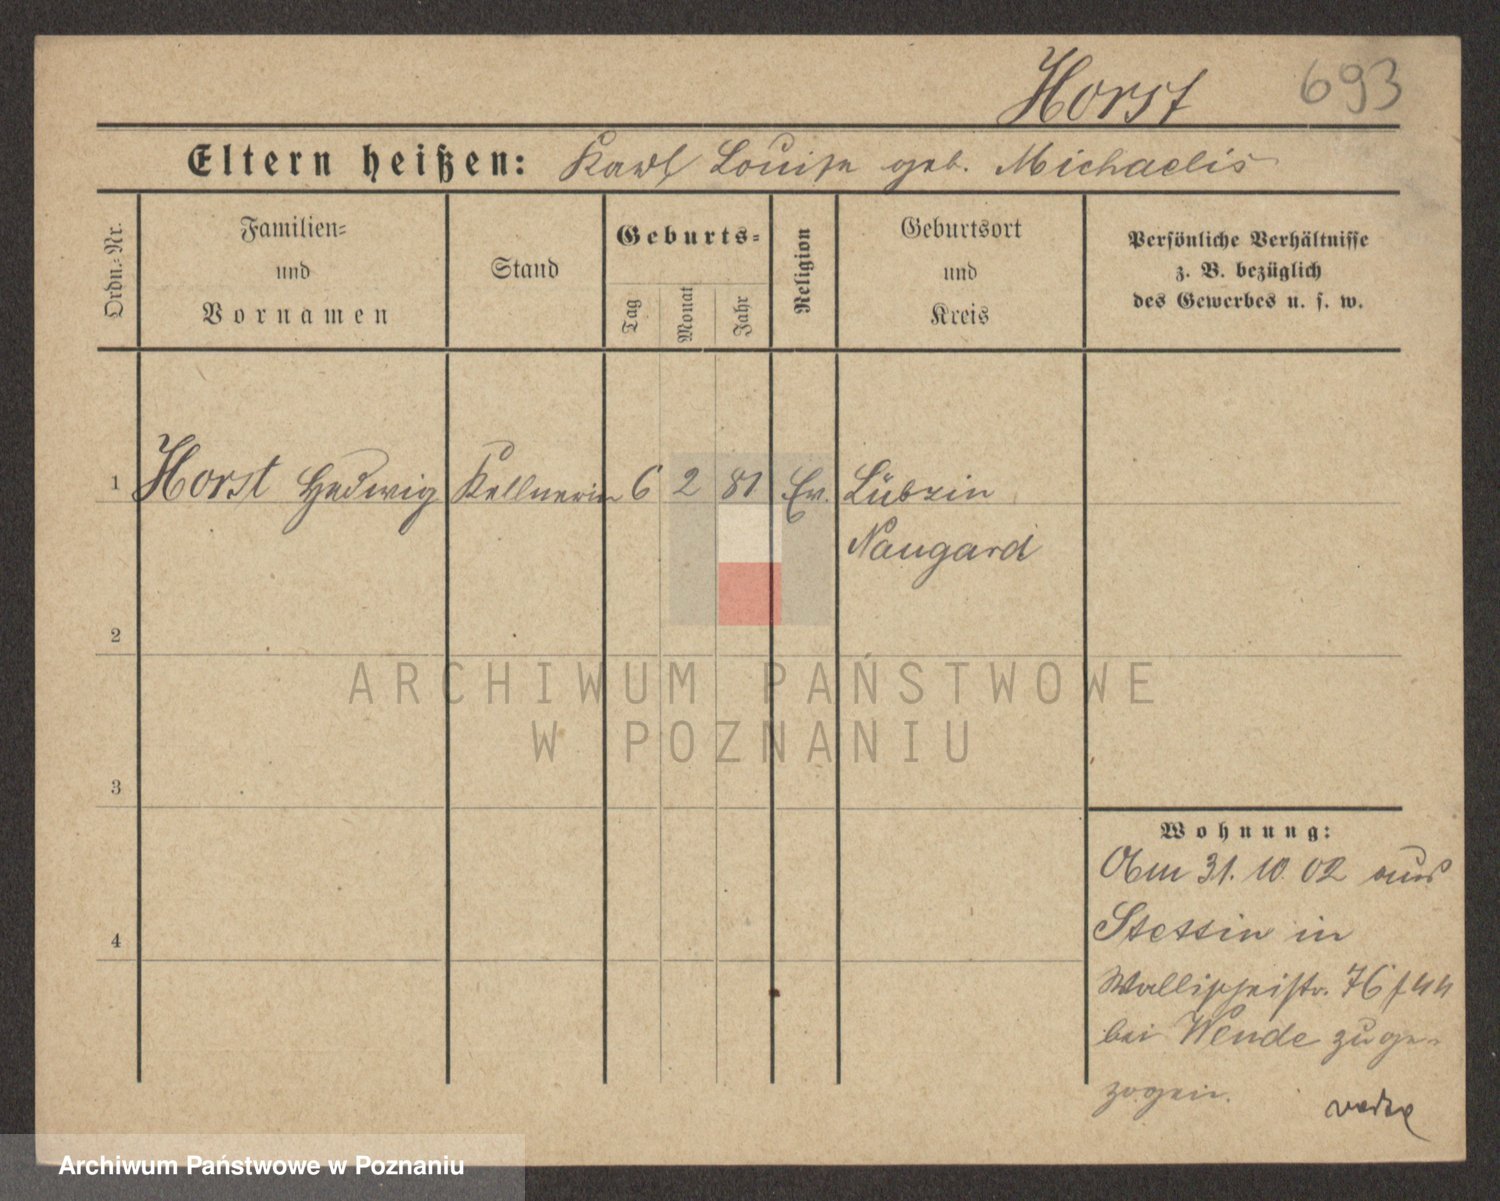 Horst 693
Eltern heißen: Karl Louise geb. Michaelis
Ordn.-Nr.
Familien-
und
Vornamen
Stand
Geburts-
Tag
Monat
Jahr
Religion
Geburtsort
und
Kreis
Persönliche Verhältnisse
z. B. bezüglich
des Gewerbes u. s. w.
1 Horst Hedwig Kellnerin 6 2 81 Ev. Lübzin
Naugard
2
3
4
ARCHIWUM PAŃSTWOWE
W POZNANIU
Wohnung:
Am 31. 10. 02 aus
Stettin in
Wallischeistr. 76
bei Wende zuge-
zogen.
Archiwum Państwowe w Poznaniu